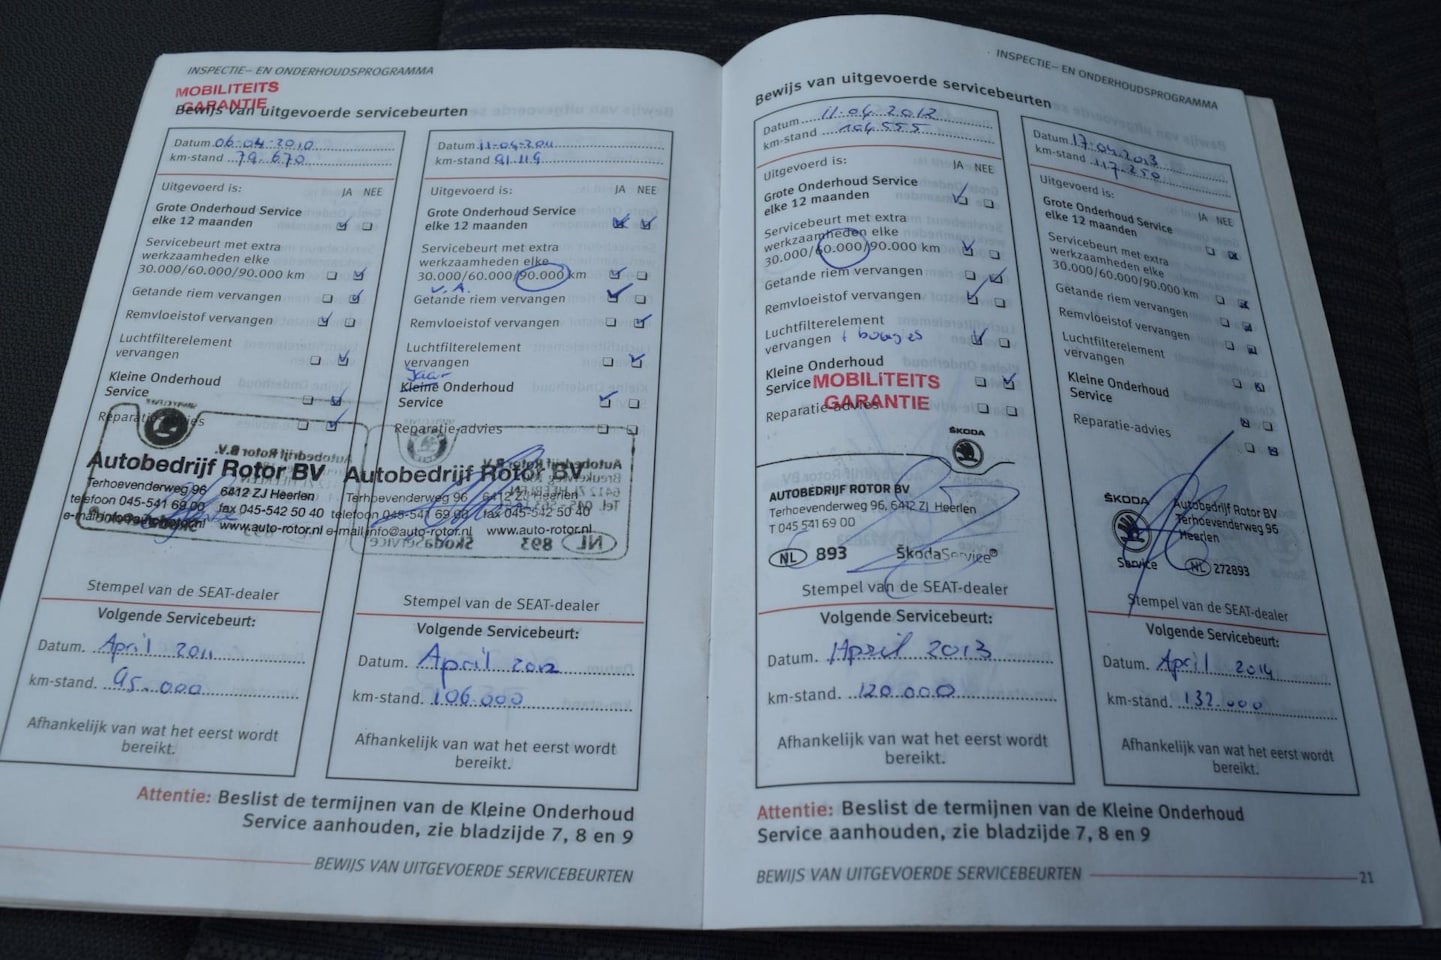 INSPECTIE- EN ONDERHOUDSPROGRAMMA
MOBILITEITS
GARANTIE
Bewijs van uitgevoerde servicebeurten
Datum 06-04-2010
km-stand 79.670
Uitgevoerd is: JA NEE
Grote Onderhoud Service
elke 12 maanden
Servicebeurt met extra
werkzaamheden elke
30.000/60.000/90.000 km
Getande riem vervangen
Remvloeistof vervangen
Luchtfilterelement
vervangen
Kleine Onderhoud
Service
Reparatie-advies
Autobedrijf Rotor BV
Terhoevenderweg 96 6412 ZJ Heerlen
telefoon 045-541 69 00 fax 045-542 50 40
e-mail info@auto-rotor.nl www.auto-rotor.nl
Stempel van de SEAT-dealer
Volgende Servicebeurt:
Datum. April 2011
km-stand. 95.000
Afhankelijk van wat het eerst wordt
bereikt.
Datum 11-04-2011
km-stand 91.119
Uitgevoerd is: JA NEE
Grote Onderhoud Service
elke 12 maanden
Servicebeurt met extra
werkzaamheden elke
30.000/60.000/90.000 km
V.A.
Getande riem vervangen
Remvloeistof vervangen
Luchtfilterelement
vervangen
Jaar
Kleine Onderhoud
Service
Reparatie-advies
Autobedrijf Rotor BV
Terhoevenderweg 96 6412 ZJ Heerlen
telefoon 045-541 69 00 fax 045-542 50 40
e-mail info@auto-rotor.nl www.auto-rotor.nl
Autobedrijf Rotor B.V.
SkodaService
893 NL
Stempel van de SEAT-dealer
Volgende Servicebeurt:
Datum. April 2012
km-stand. 106.000
Afhankelijk van wat het eerst wordt
bereikt.
Attentie: Beslist de termijnen van de Kleine Onderhoud
Service aanhouden, zie bladzijde 7, 8 en 9
BEWIJS VAN UITGEVOERDE SERVICEBEURTEN
INSPECTIE- EN ONDERHOUDSPROGRAMMA
Bewijs van uitgevoerde servicebeurten
Datum 11-04-2012
km-stand 104.555
Uitgevoerd is: JA NEE
Grote Onderhoud Service
elke 12 maanden
Servicebeurt met extra
werkzaamheden elke
30.000/60.000/90.000 km
Getande riem vervangen
Remvloeistof vervangen
Luchtfilterelement
vervangen + bougies
Kleine Onderhoud
Service
MOBILITEITS
GARANTIE
Reparatie-advies
ŠKODA
AUTOBEDRIJF ROTOR BV
Terhoevenderweg 96, 6412 ZJ Heerlen
T 045 541 69 00
NL 893 ŠkodaService®
Stempel van de SEAT-dealer
Volgende Servicebeurt:
Datum. April 2013
km-stand. 120.000
Afhankelijk van wat het eerst wordt
bereikt.
Datum 17-04-2013
km-stand 117.250
Uitgevoerd is: JA NEE
Grote Onderhoud Service
elke 12 maanden
Servicebeurt met extra
werkzaamheden elke
30.000/60.000/90.000 km
Getande riem vervangen
Remvloeistof vervangen
Luchtfilterelement
vervangen
Kleine Onderhoud
Service
Reparatie-advies
ŠKODA
Autobedrijf Rotor BV
Terhoevenderweg 96
Heerlen
Service NL 272893
Stempel van de SEAT-dealer
Volgende Servicebeurt:
Datum. April 2014
km-stand. 132.000
Afhankelijk van wat het eerst wordt
bereikt.
Attentie: Beslist de termijnen van de Kleine Onderhoud
Service aanhouden, zie bladzijde 7, 8 en 9
BEWIJS VAN UITGEVOERDE SERVICEBEURTEN 21